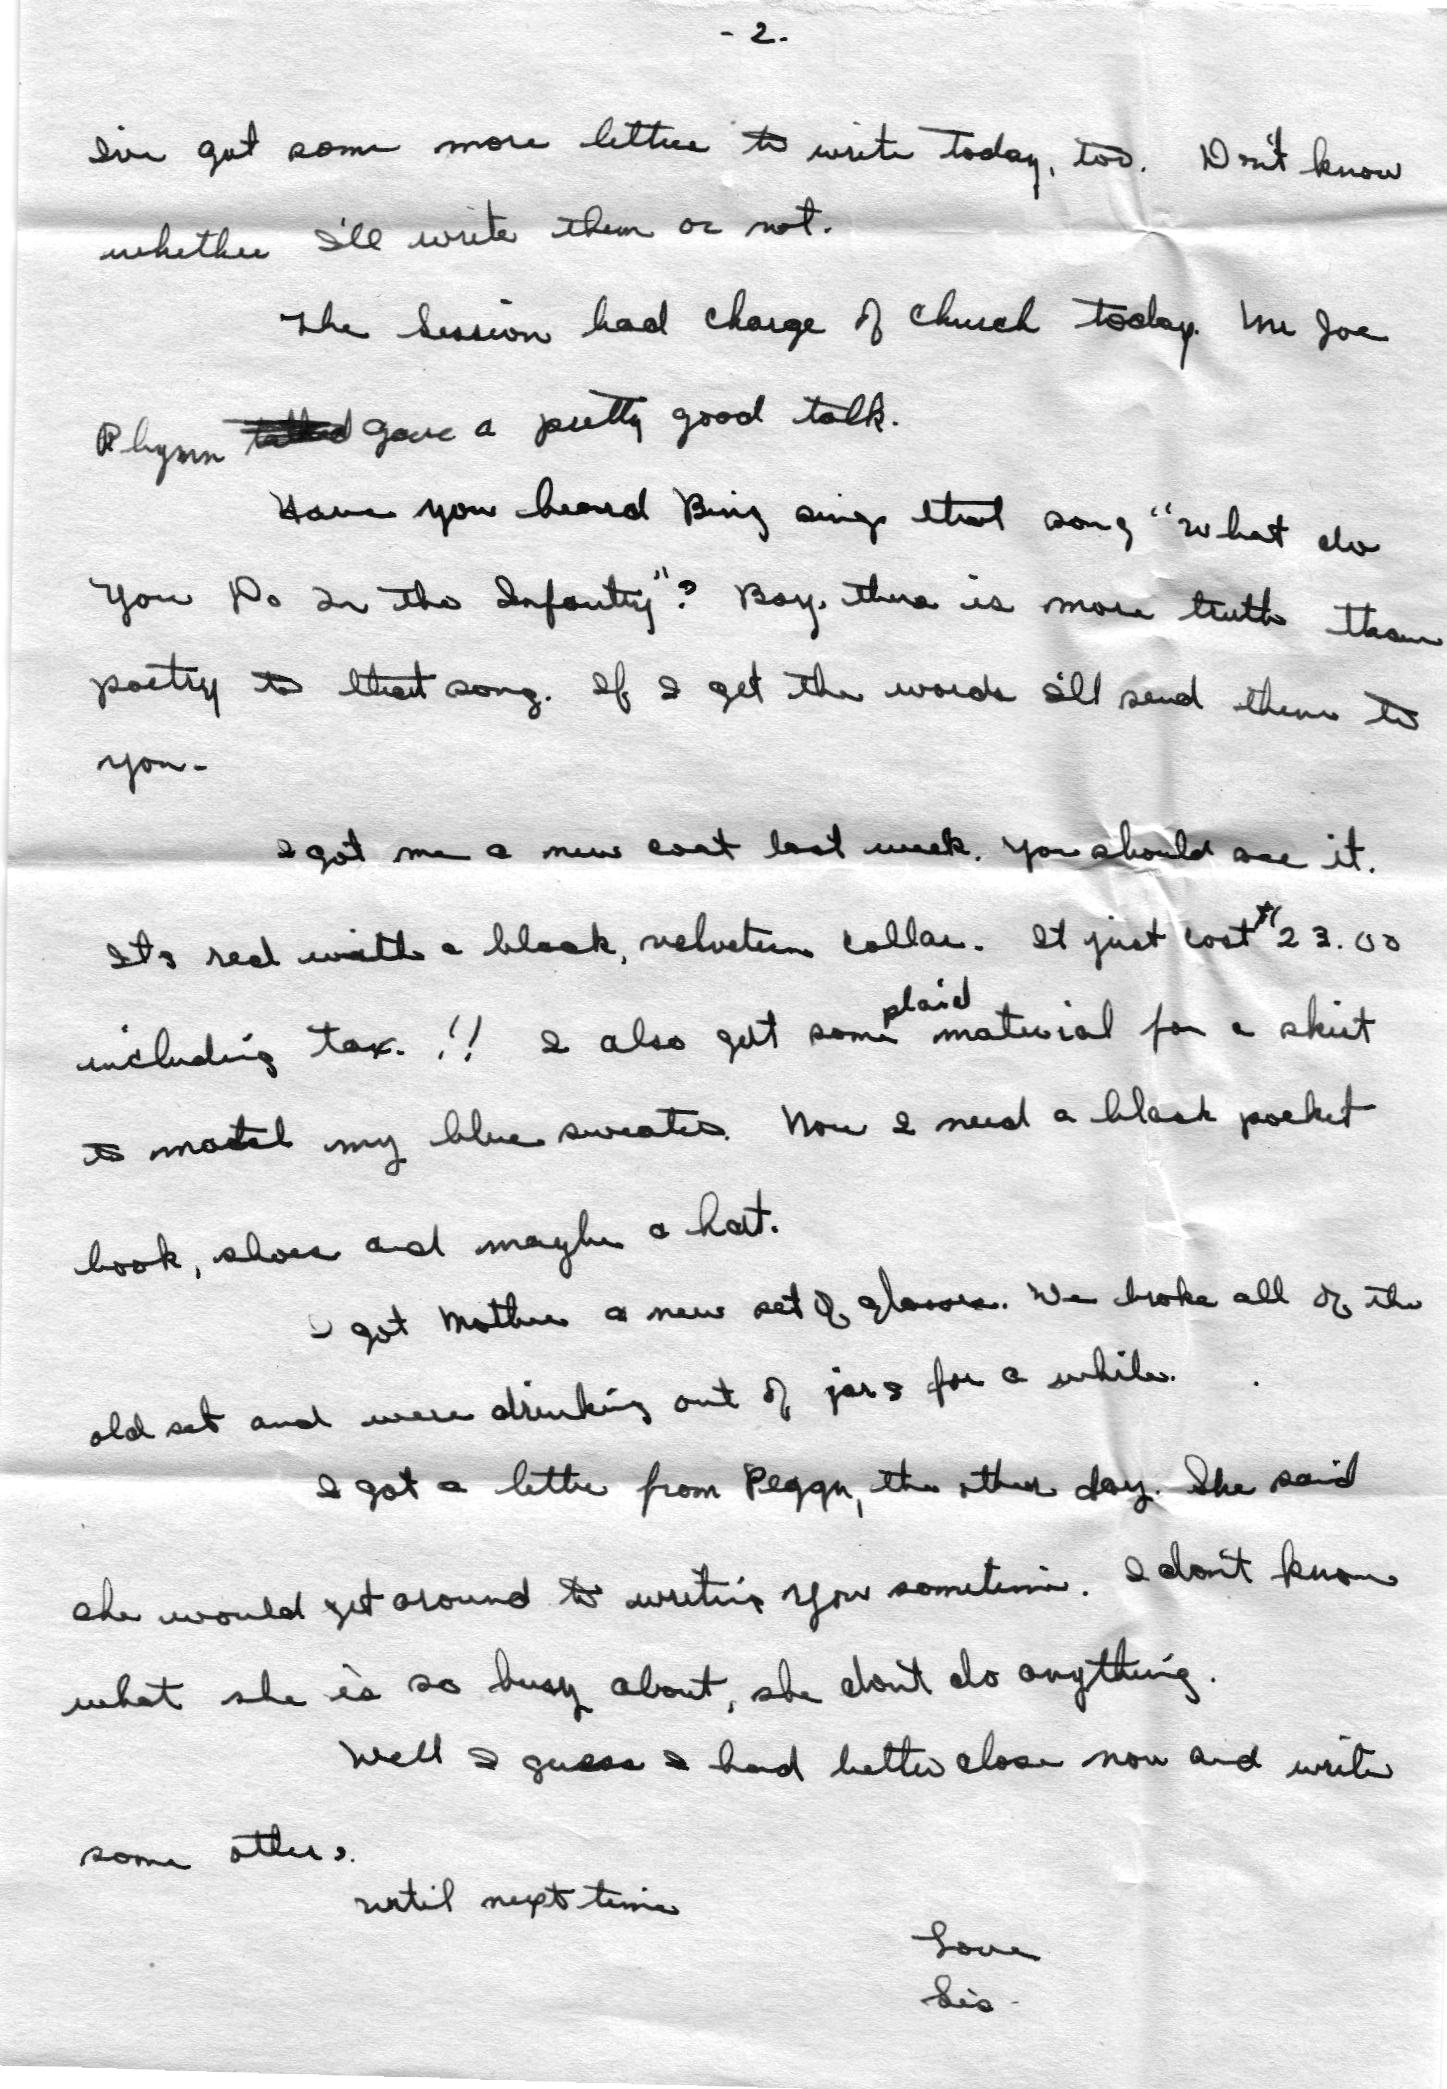 - 2.
I've got some more letters to write today, too. Don't know
whether I'll write them or not.
The Session had charge of Church today. Mr Joe
Rhynn talked gave a pretty good talk.
Have you heard Bing sing that song "What do
You Do In the Infantry"? Boy, there is more truth than
poetry to that song. If I get the words I'll send them to
you.
I got me a new coat last week. You should see it.
It's red with a black, velveteen collar. It just cost $23.00
including tax. !! I also got some plaid material for a skirt
to match my blue sweater. Now I need a black pocket
book, shoes and maybe a hat.
I got Mother a new set of glasses. We broke all of the
old set and were drinking out of jars for a while.
I got a letter from Peggy, the other day. She said
she would get around to writing you sometime. I don't know
what she is so busy about, she don't do anything.
Well I guess I had better close now and write
some others.
Until next time
Love
Sis